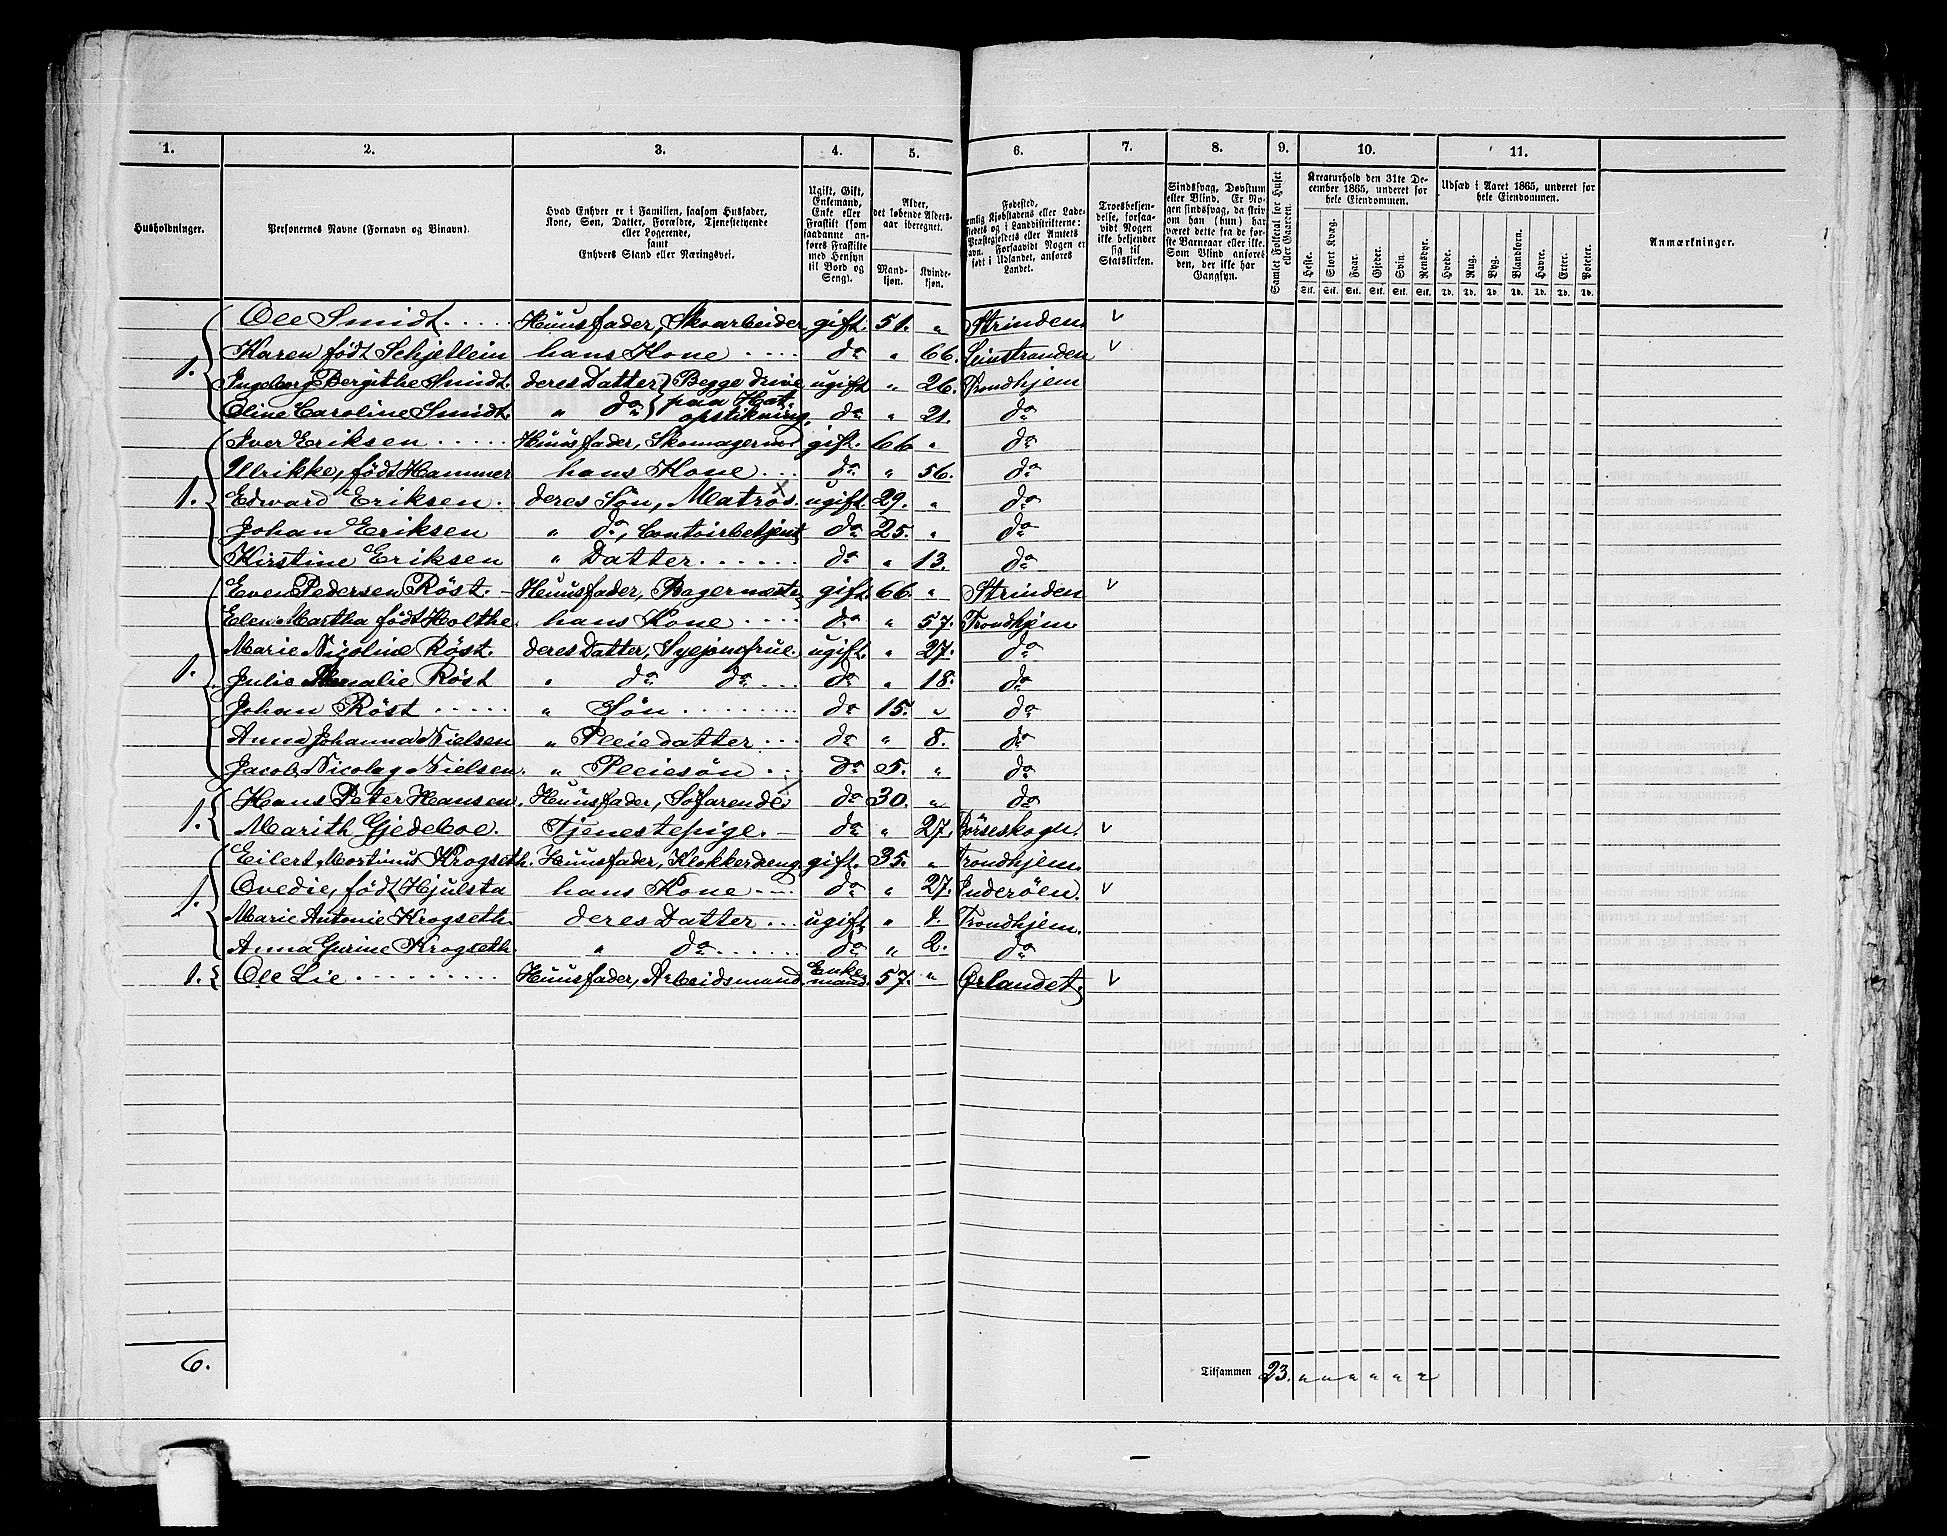 1. 2. 3. 4. 5. 6. 7. 8. 9. 10. 11.
Husholdninger.
Personernes Navne (Fornavn og Binavn).
Hvad Enhver er i Familien, saasom Husfader,
Kone, Søn, Datter, Forældre, Tjenestetyende
eller Logerende,
samt
Enhvers Stand eller Næringsvei.
Ugift, Gift,
Enkemand,
Enke eller
Fraskilt (som
saadanne an-
føres Fraskilte
med Hensyn
til Bord og
Seng).
Alder,
det løbende Alders-
aar iberegnet.
Mand-
kjøn.
Kvinde-
kjøn.
Fødested,
nemlig Kjøbstadens eller Lade-
stedets og i Landdistrikterne:
Præstegjeldets eller Amtets
Navn. Forsaavidt Nogen er
født i Udlandet, anføres
Landet.
Troesbekjen-
delse, forsaa-
vidt Nogen
ikke bekjender
sig til
Statskirken.
Sindssvag, Døvstum
eller Blind. Er No-
gen sindssvag, da skriv
om han (hun) har
været dette fra de før-
ste Barneaar eller ikke.
Som Blind anføres
den, der ikke har
Gangsyn.
Samlet Folketal for Huset
eller Gaarden.
Kreaturhold den 31te De-
cember 1865, underet for
hele Eiendommen.
Heste. Stort Kvæg. Faar. Gjeder. Svin. Rensdyr.
Stk. Stk. Stk. Stk. Stk. Stk.
Udsæd i Aaret 1865, underet for
hele Eiendommen.
Hvede. Rug. Byg. Blandkorn. Havre. Erter. Poteter.
Td. Td. Td. Td. Td. Td. Td.
Anmærkninger.
Ole Smidt. Huusfader, Skoarbeider gift. 51. " Strinden. v
1. Karen født Schjetlein hans Kone do " 66. Leinstranden v
Ingeborg Bergithe Smidt. deres Datter } Begge drive ugift " 26. Trondhjem
Oline Caroline Smidt. " do } paa Hat- opstikning, do " 21. do
Iver Eriksen Huusfader, Skomagerm gift. 66 " do
Ulrikke, født Hammer hans Kone do " 56. do
1. Edvard Eriksen. deres Søn, Matros. ugift. 29. " do
Johan Eriksen " do, Contoirbetjent do 25. " do
Kirstine Eriksen " Datter do " 13. do
Even Pedersen Röst. Huusfader, Bagermester gift. 66. " Strinden v
Elen Martha født Holthe. hans Kone do " 57. Trondhjem
Marie Nicoline Röst. deres Datter, Syejomfrue. ugift. " 27. do
1. Julie Amalie Röst " do do do " 18. do
Johan Röst " Søn do 15. " do
Anna Johanna Nielsen " Pleiedatter do " 8. do
Jacob Nicolay Nielsen. " Pleiesøn do 5. " do
Hans Peter Hansen. Huusfader, Søfarende do 30. " do
1. Marith Gjedeboe. Tjenestepige. do " 27. Börseskogn. v
Eilert Mortinus Krogseth. Huusfader, Klokkerdreng gift. 35. " Trondhjem.
1. Ovedie, født Hjulsta hans Kone do " 27. Inderöen. v
Marie Antonie Krogseth. deres Datter ugift " 4. Trondhjem.
Anna Gurine Krogseth. " do do " 2. do
1. Ole Lie Huusfader, Arbeidsmand. Enke- mand. 57. " Ørlandet. v
6. Tilsammen 23. " " " " " "